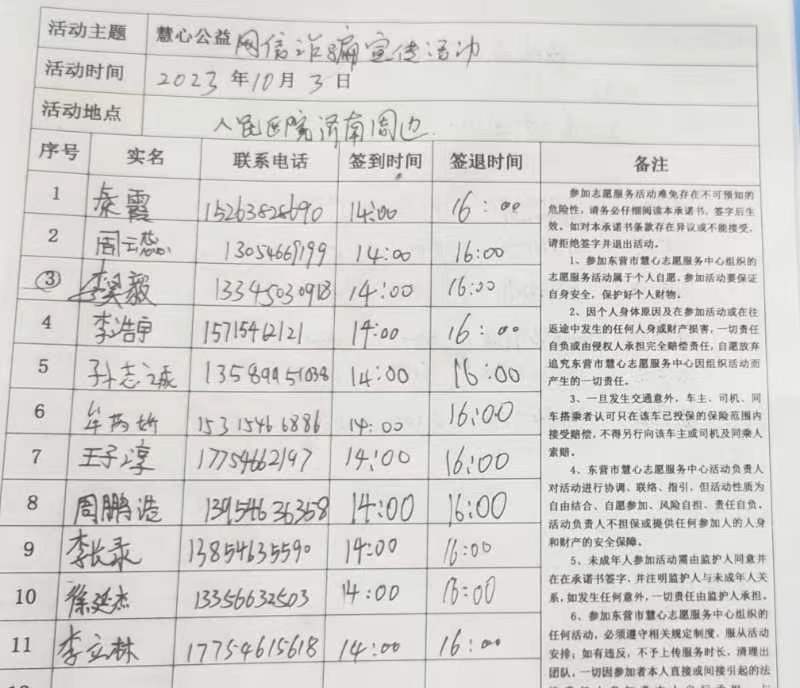 活动主题 慧心公益 网信诈骗宣传活动
活动时间 2023年10月3日
活动地点 人民医院济南周边
序号 实名 联系电话 签到时间 签退时间 备注
1 秦霞 15263828690 14:00 16:00
2 周云 13054669199 14:00 16:00
③ 李昊毅 13345030918 14:00 16:00
4 李浩宇 15715462121 14:00 16:00
5 孙志诚 13589951038 14:00 16:00
6 15315466886 14:00 16:00
7 王子淳 17754662197 14:00 16:00
8 周鹏浩 13954636358 14:00 16:00
9 李长录 13854635590 14:00 16:00
10 徐延杰 13356632503 14:00 16:00
11 李立林 17754615618 14:00 16:00
参加志愿服务活动难免存在不可预知的
危险性,请务必仔细阅读本承诺书,签字后生
效,如对本承诺书条款存在异议或不能接受,
请拒绝签字并退出活动。
1、参加东营市慧心志愿服务中心组织的
志愿服务活动属于个人自愿,参加活动要保证
自身安全,保护好个人财物。
2、因个人身体原因及在参加活动或在往
返途中发生的任何人身或财产损害,一切责任
自负或由侵权人承担完全赔偿责任,自愿放弃
追究东营市慧心志愿服务中心因组织活动而
产生的一切责任。
3、一旦发生交通意外,车主、司机、同
车搭乘者认可只在该车已投保的保险范围内
接受赔偿,不得另行向该车主或司机及同乘人
索赔。
4、东营市慧心志愿服务中心活动负责人
对活动进行协调、联络、指引,但活动性质为
自由结合、自愿参加、风险自担、责任自负。
活动负责人不担保或提供任何参加人的人身
和财产的安全保障。
5、未成年人参加活动需由监护人同意并
在在承诺书签字,并注明监护人与未成年人关
系,如发生任何意外,一切责任由监护人承担。
6、参加东营市慧心志愿服务中心组织的
任何活动,必须遵守相关规定制度,服从活动
安排;如有违反,不予上传服务时长,清理出
团队,一切因参加者本人直接或间接引起的法